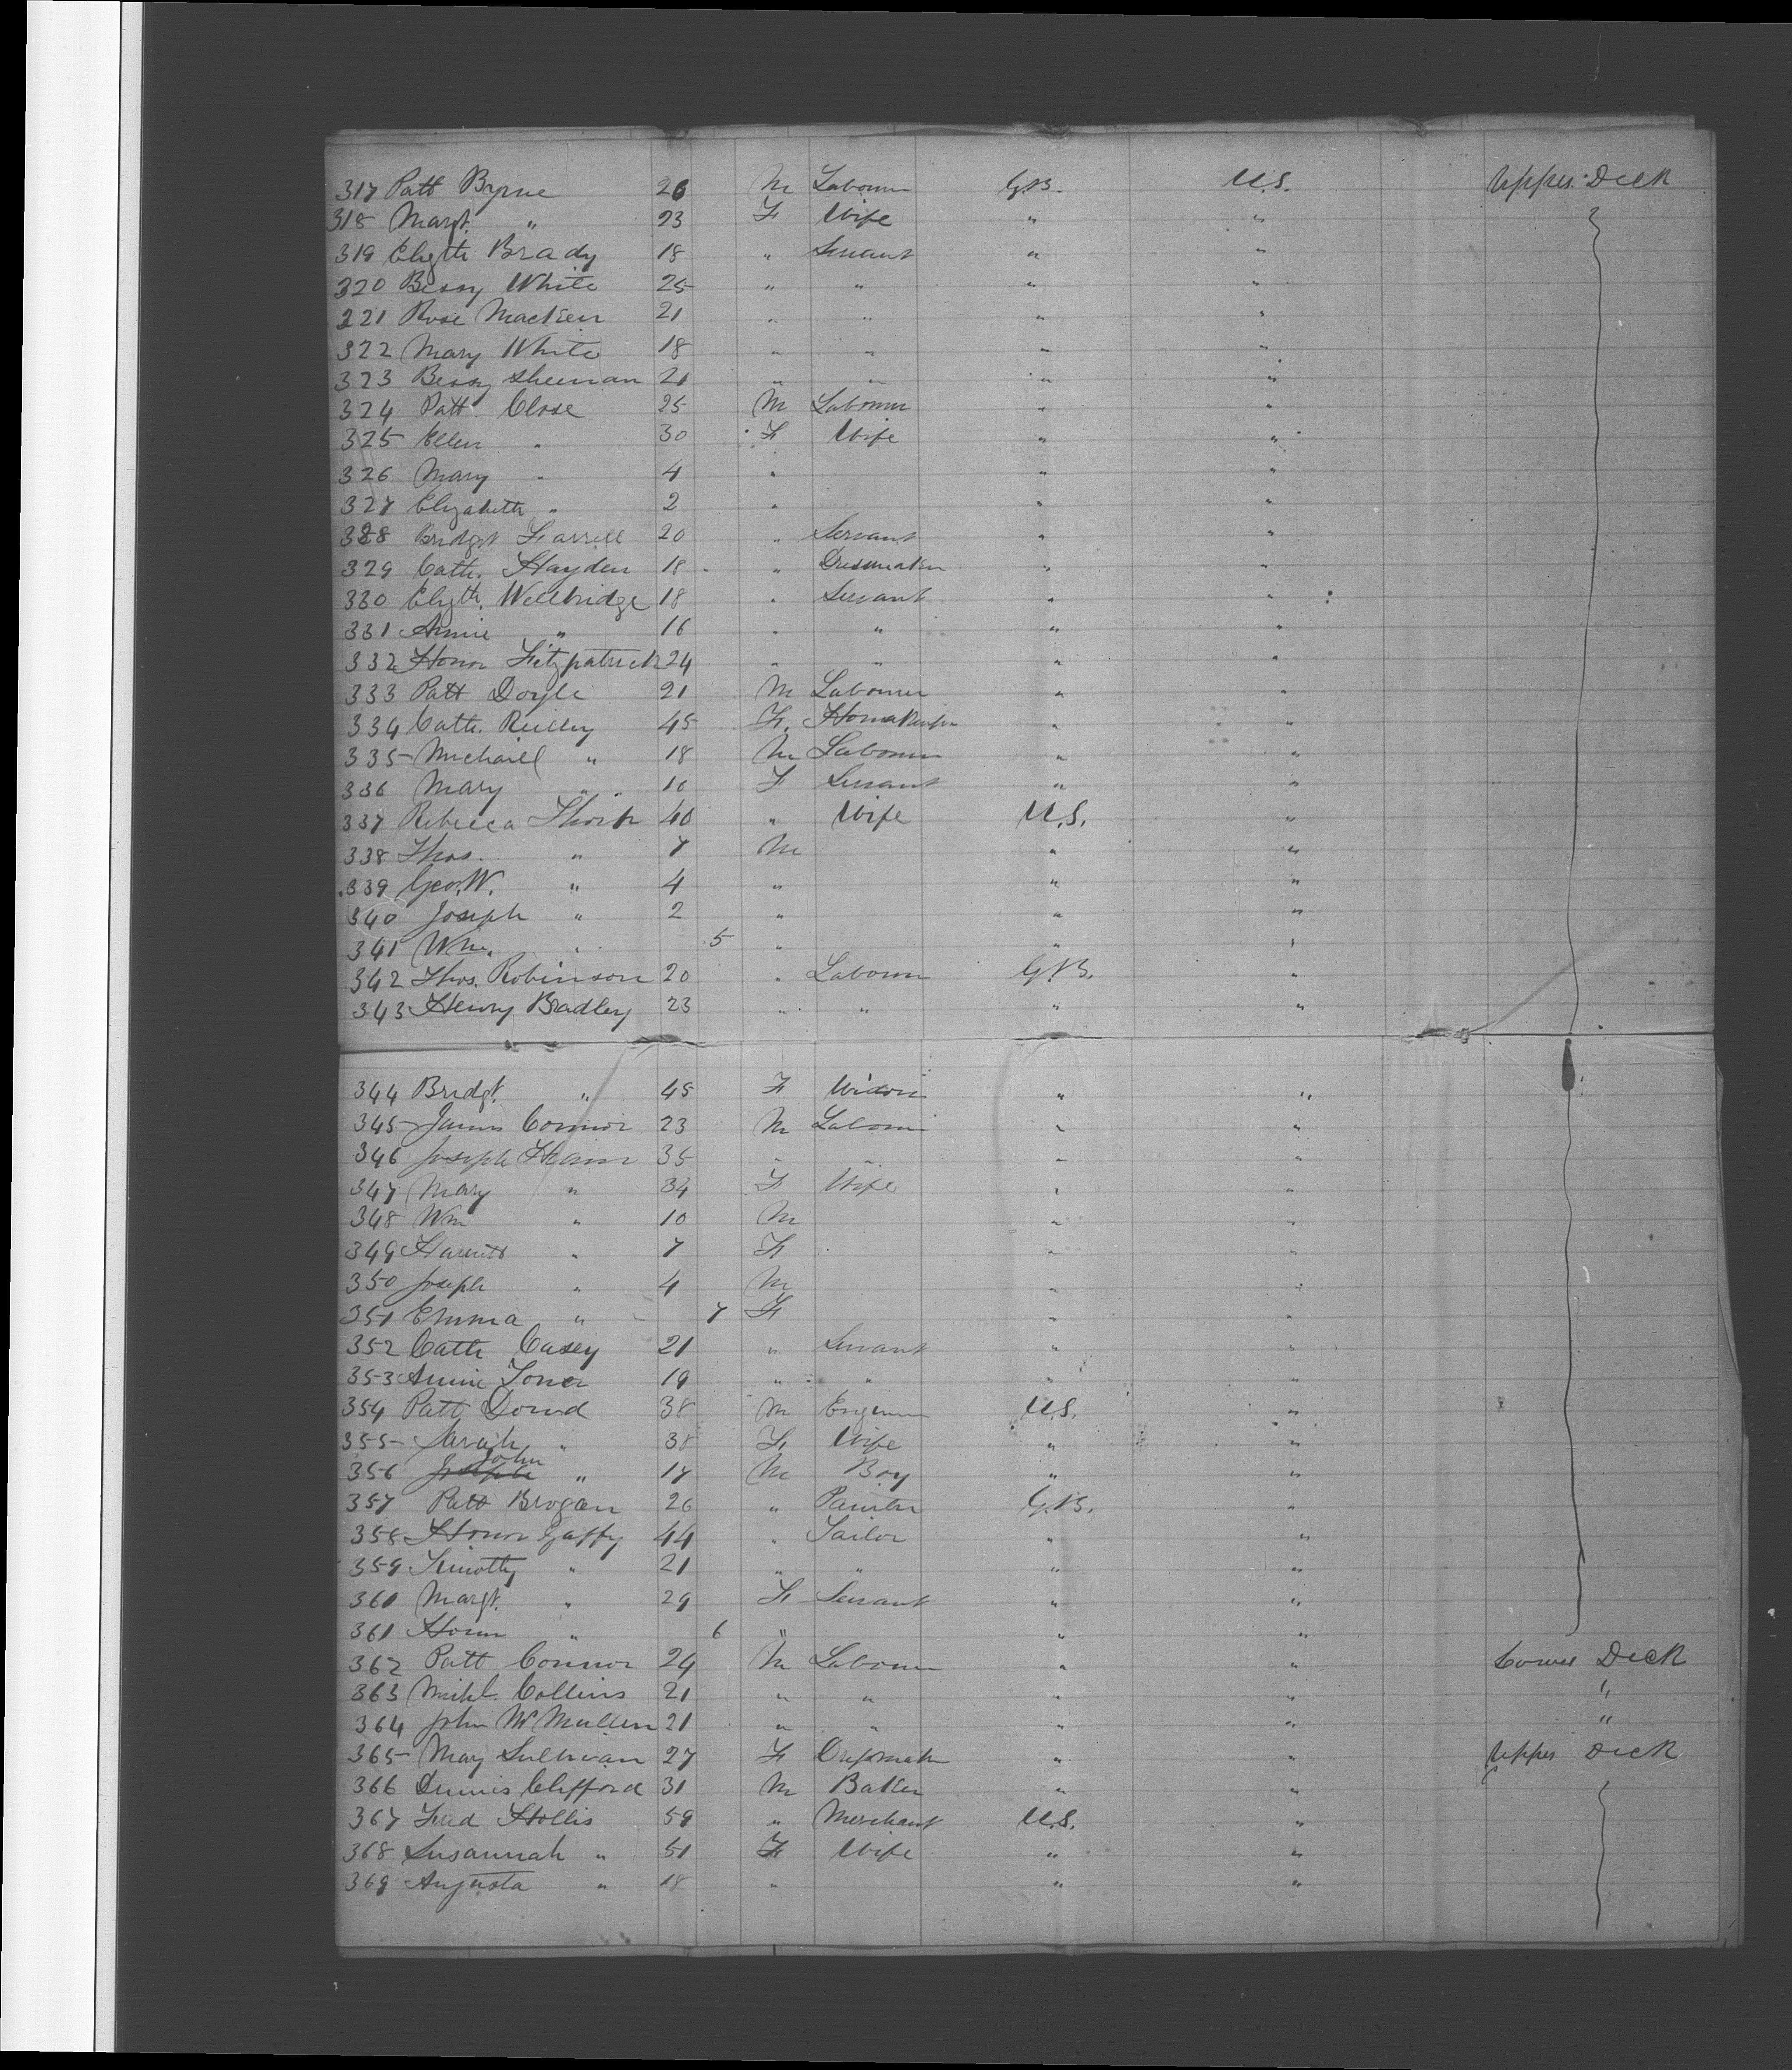 317 Patt Byrne 26 M Labourer G.B. U.S. Upper Deck
318 Margt. " 23 F Wife " "
319 Elizth Brady 18 " Servant " "
320 Bessy White 25 " " " "
321 Rose Macken 21 " " " "
322 Mary White 18 " " " "
323 Bessy Sheeran 21 " " " "
324 Patt Close 25 M Labourer " "
325 Ellen " 30 F Wife " "
326 Mary " 4 " " "
327 Elizabeth " 2 " " "
328 Bridget Farrell 20 " Servant " "
329 Cath. Hayden 18 " Dressmaker " "
330 Elizth. Wellbridge 18 " Servant " "
331 Annie " 16 " " " "
332 Honor Fitzpatrick 24 " " " "
333 Patt Doyle 21 M Labourer " "
334 Cath. Reilley 45 F. " "
335 Michaell " 18 M Labourer " "
336 Mary " 16 F Servant " "
337 Rebecca 40 " Wife U.S. "
338 Thos. " 7 M " "
339 Geo. W. " 4 " " "
340 Joseph " 2 " " "
341 Wm. " 5 " " "
342 Thos. Robinson 20 " Labourer G.B. "
343 Henry Bradley 23 " " " "
344 Bridgt. " 45 F Widow " "
345 James Connor 23 M Labourer " "
346 Joseph 35 " " " "
347 Mary " 34 F Wife " "
348 Wm " 10 M " "
349 Harriett " 7 F " "
350 Joseph " 4 M " "
351 Emma " 7 F " "
352 Cath Casey 21 " Servant " "
353 Annie Toner 19 " " " "
354 Patt Dowd 38 M Engineer U.S. "
355 Sarah " 38 F Wife " "
356 Joseph John " 17 M Boy " "
357 Patt Brogan 26 " Painter G.B. "
358 Honor Gaffy 44 " Tailor " "
359 Timothy " 21 " " " "
360 Margt. " 29 F Servant " "
361 Honor " 6 " " "
362 Patt Connor 24 M Labourer " " Lower Deck
363 Michl. Collins 21 " " " " "
364 John McMullen 21 " " " " "
365 Mary Sullivan 27 F Dressmaker " " Upper Deck
366 Dennis Clifford 31 M Baker " "
367 Fred Hollis 59 " Merchant U.S. "
368 Susannah " 51 F Wife " "
369 Augusta " 18 " " "